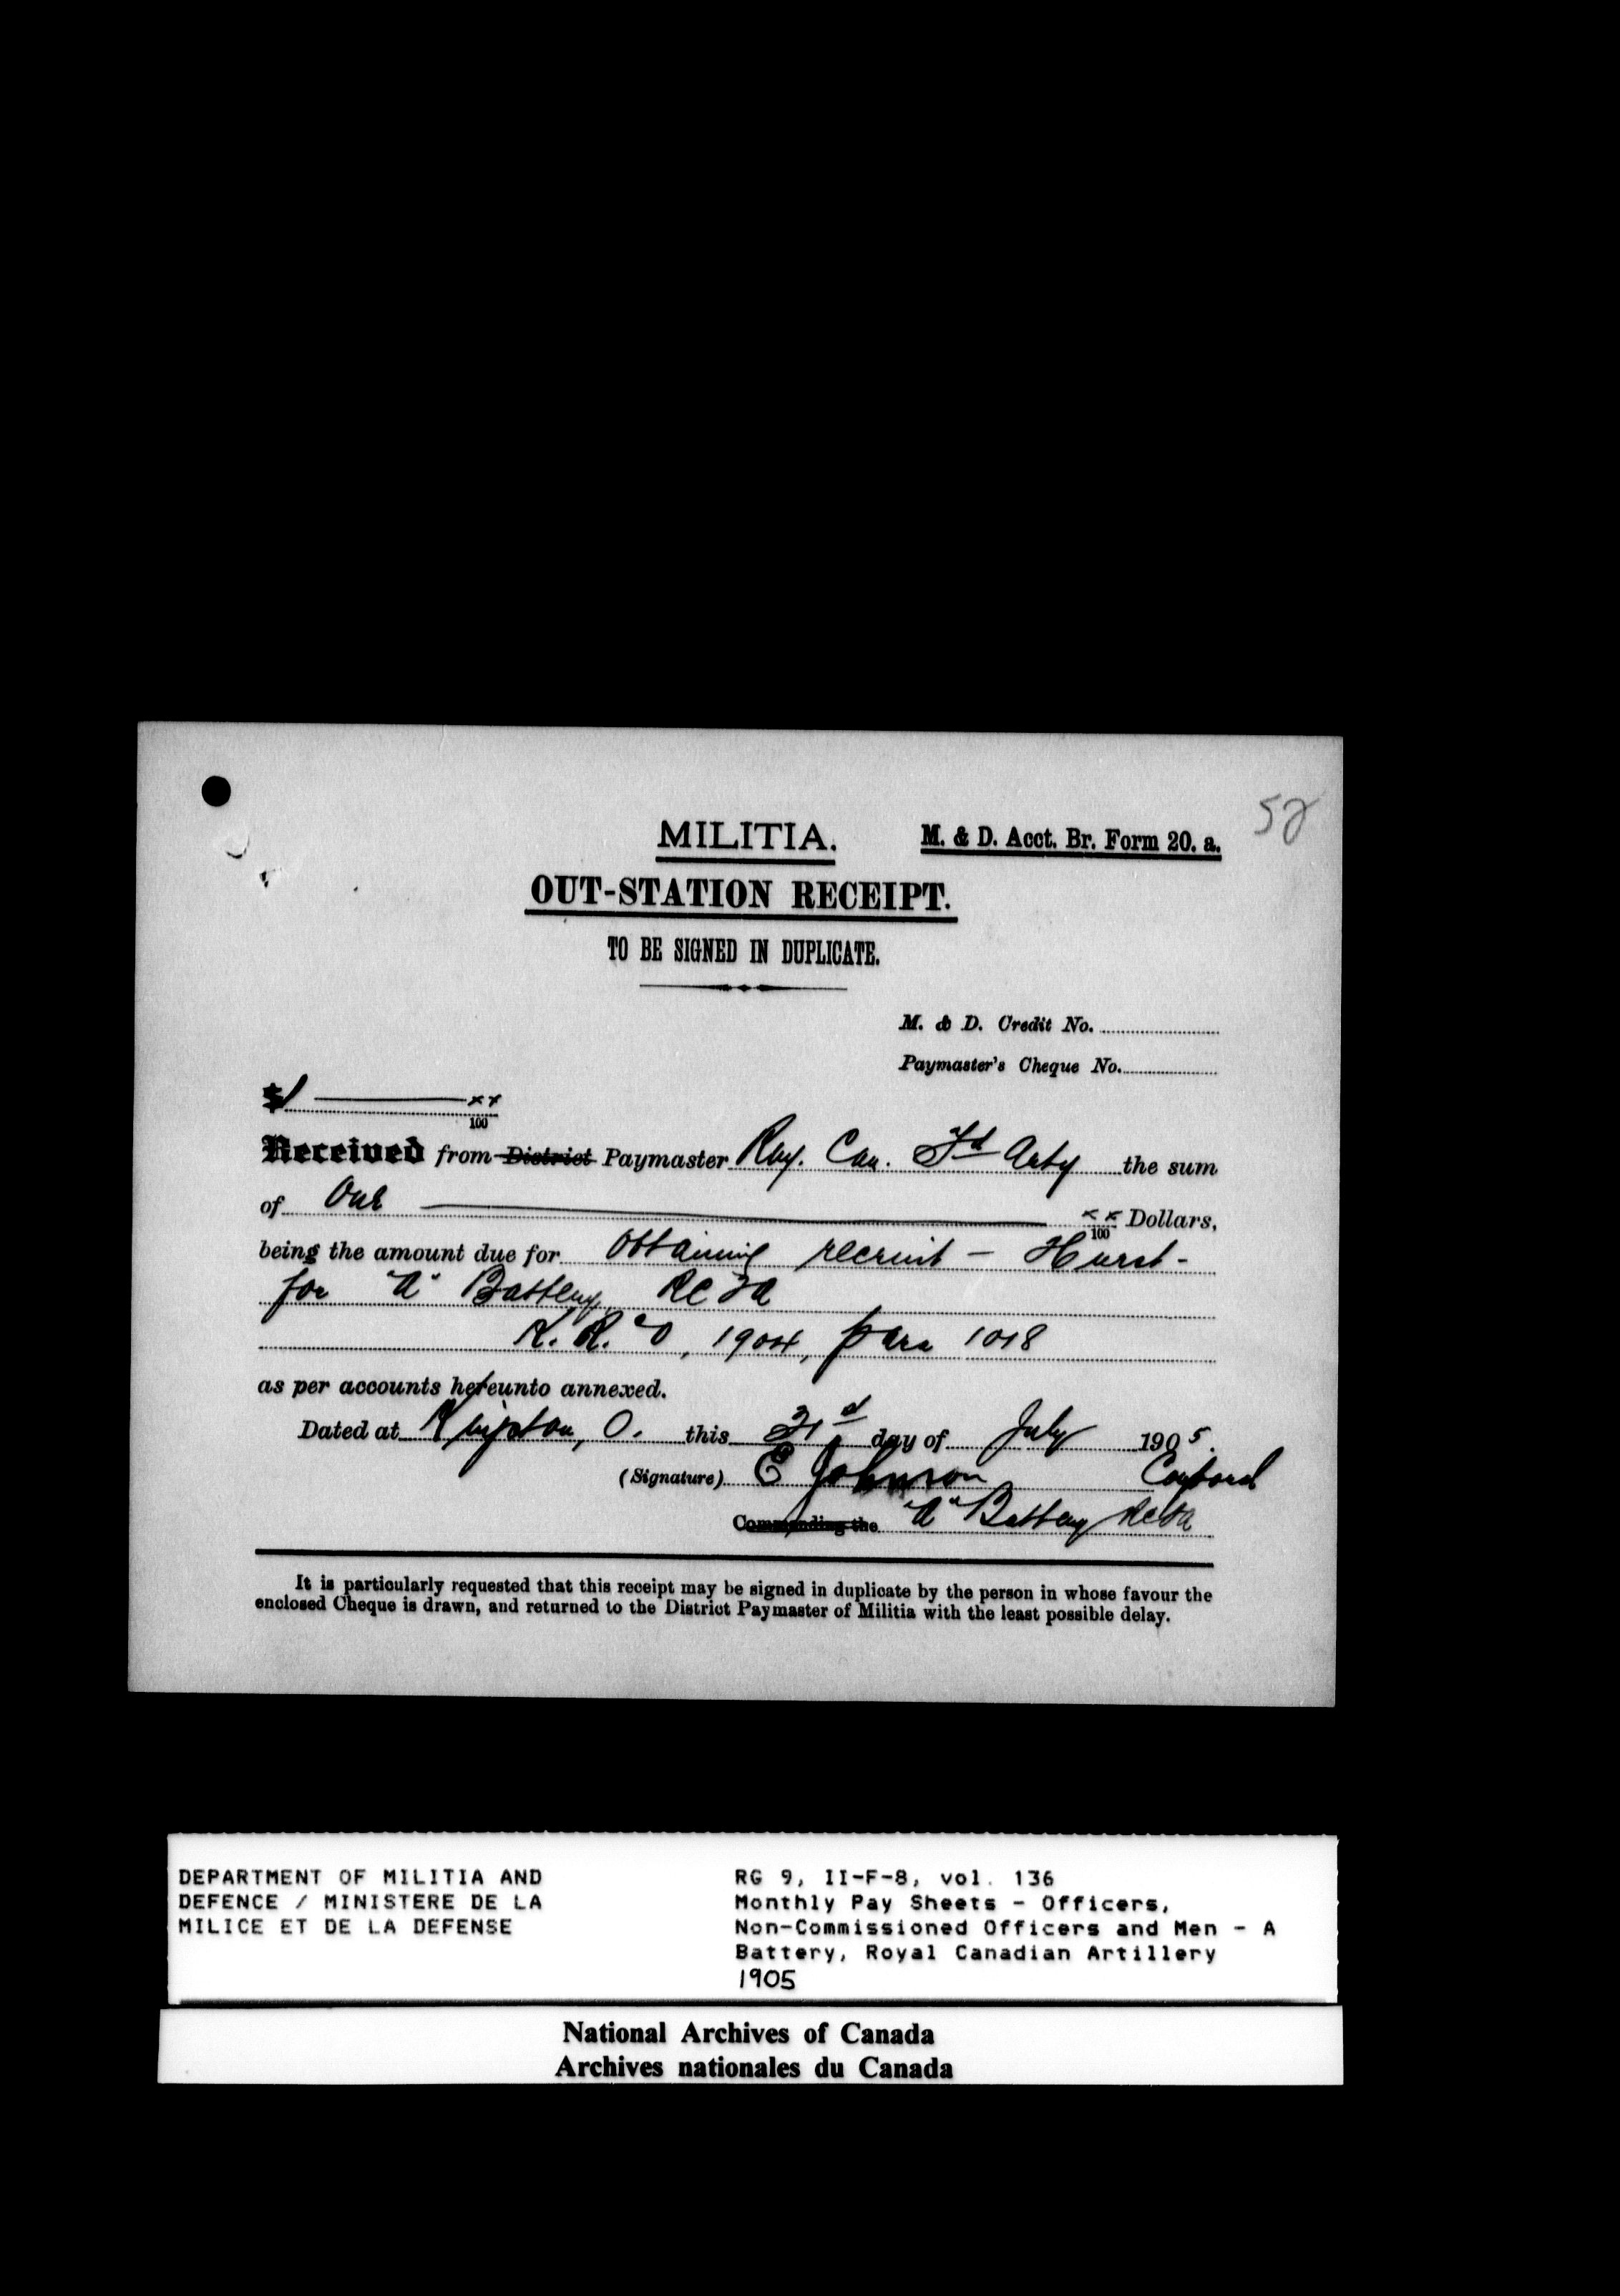 52
MILITIA.
M. & D. Acct. Br. Form 20. a.
OUT-STATION RECEIPT.
TO BE SIGNED IN DUPLICATE.
M. & D. Credit No.
Paymaster's Cheque No.
$1 xx/100
Received from District Paymaster Roy. Can. Fd Arty the sum
of One xx/100 Dollars,
being the amount due for Obtaining recruit - Hurst -
for "A" Battery RCFA
K. R. & O, 1904, para 1018
as per accounts hereunto annexed.
Dated at Kingston, O. this 31st day of July 1905.
(Signature) E Johnson Corporal
Commanding the "A" Battery RCFA
It is particularly requested that this receipt may be signed in duplicate by the person in whose favour the
enclosed Cheque is drawn, and returned to the District Paymaster of Militia with the least possible delay.
DEPARTMENT OF MILITIA AND
DEFENCE / MINISTERE DE LA
MILICE ET DE LA DEFENSE
RG 9, II-F-8, vol. 136
Monthly Pay Sheets - Officers,
Non-Commissioned Officers and Men - A
Battery, Royal Canadian Artillery
1905
National Archives of Canada
Archives nationales du Canada